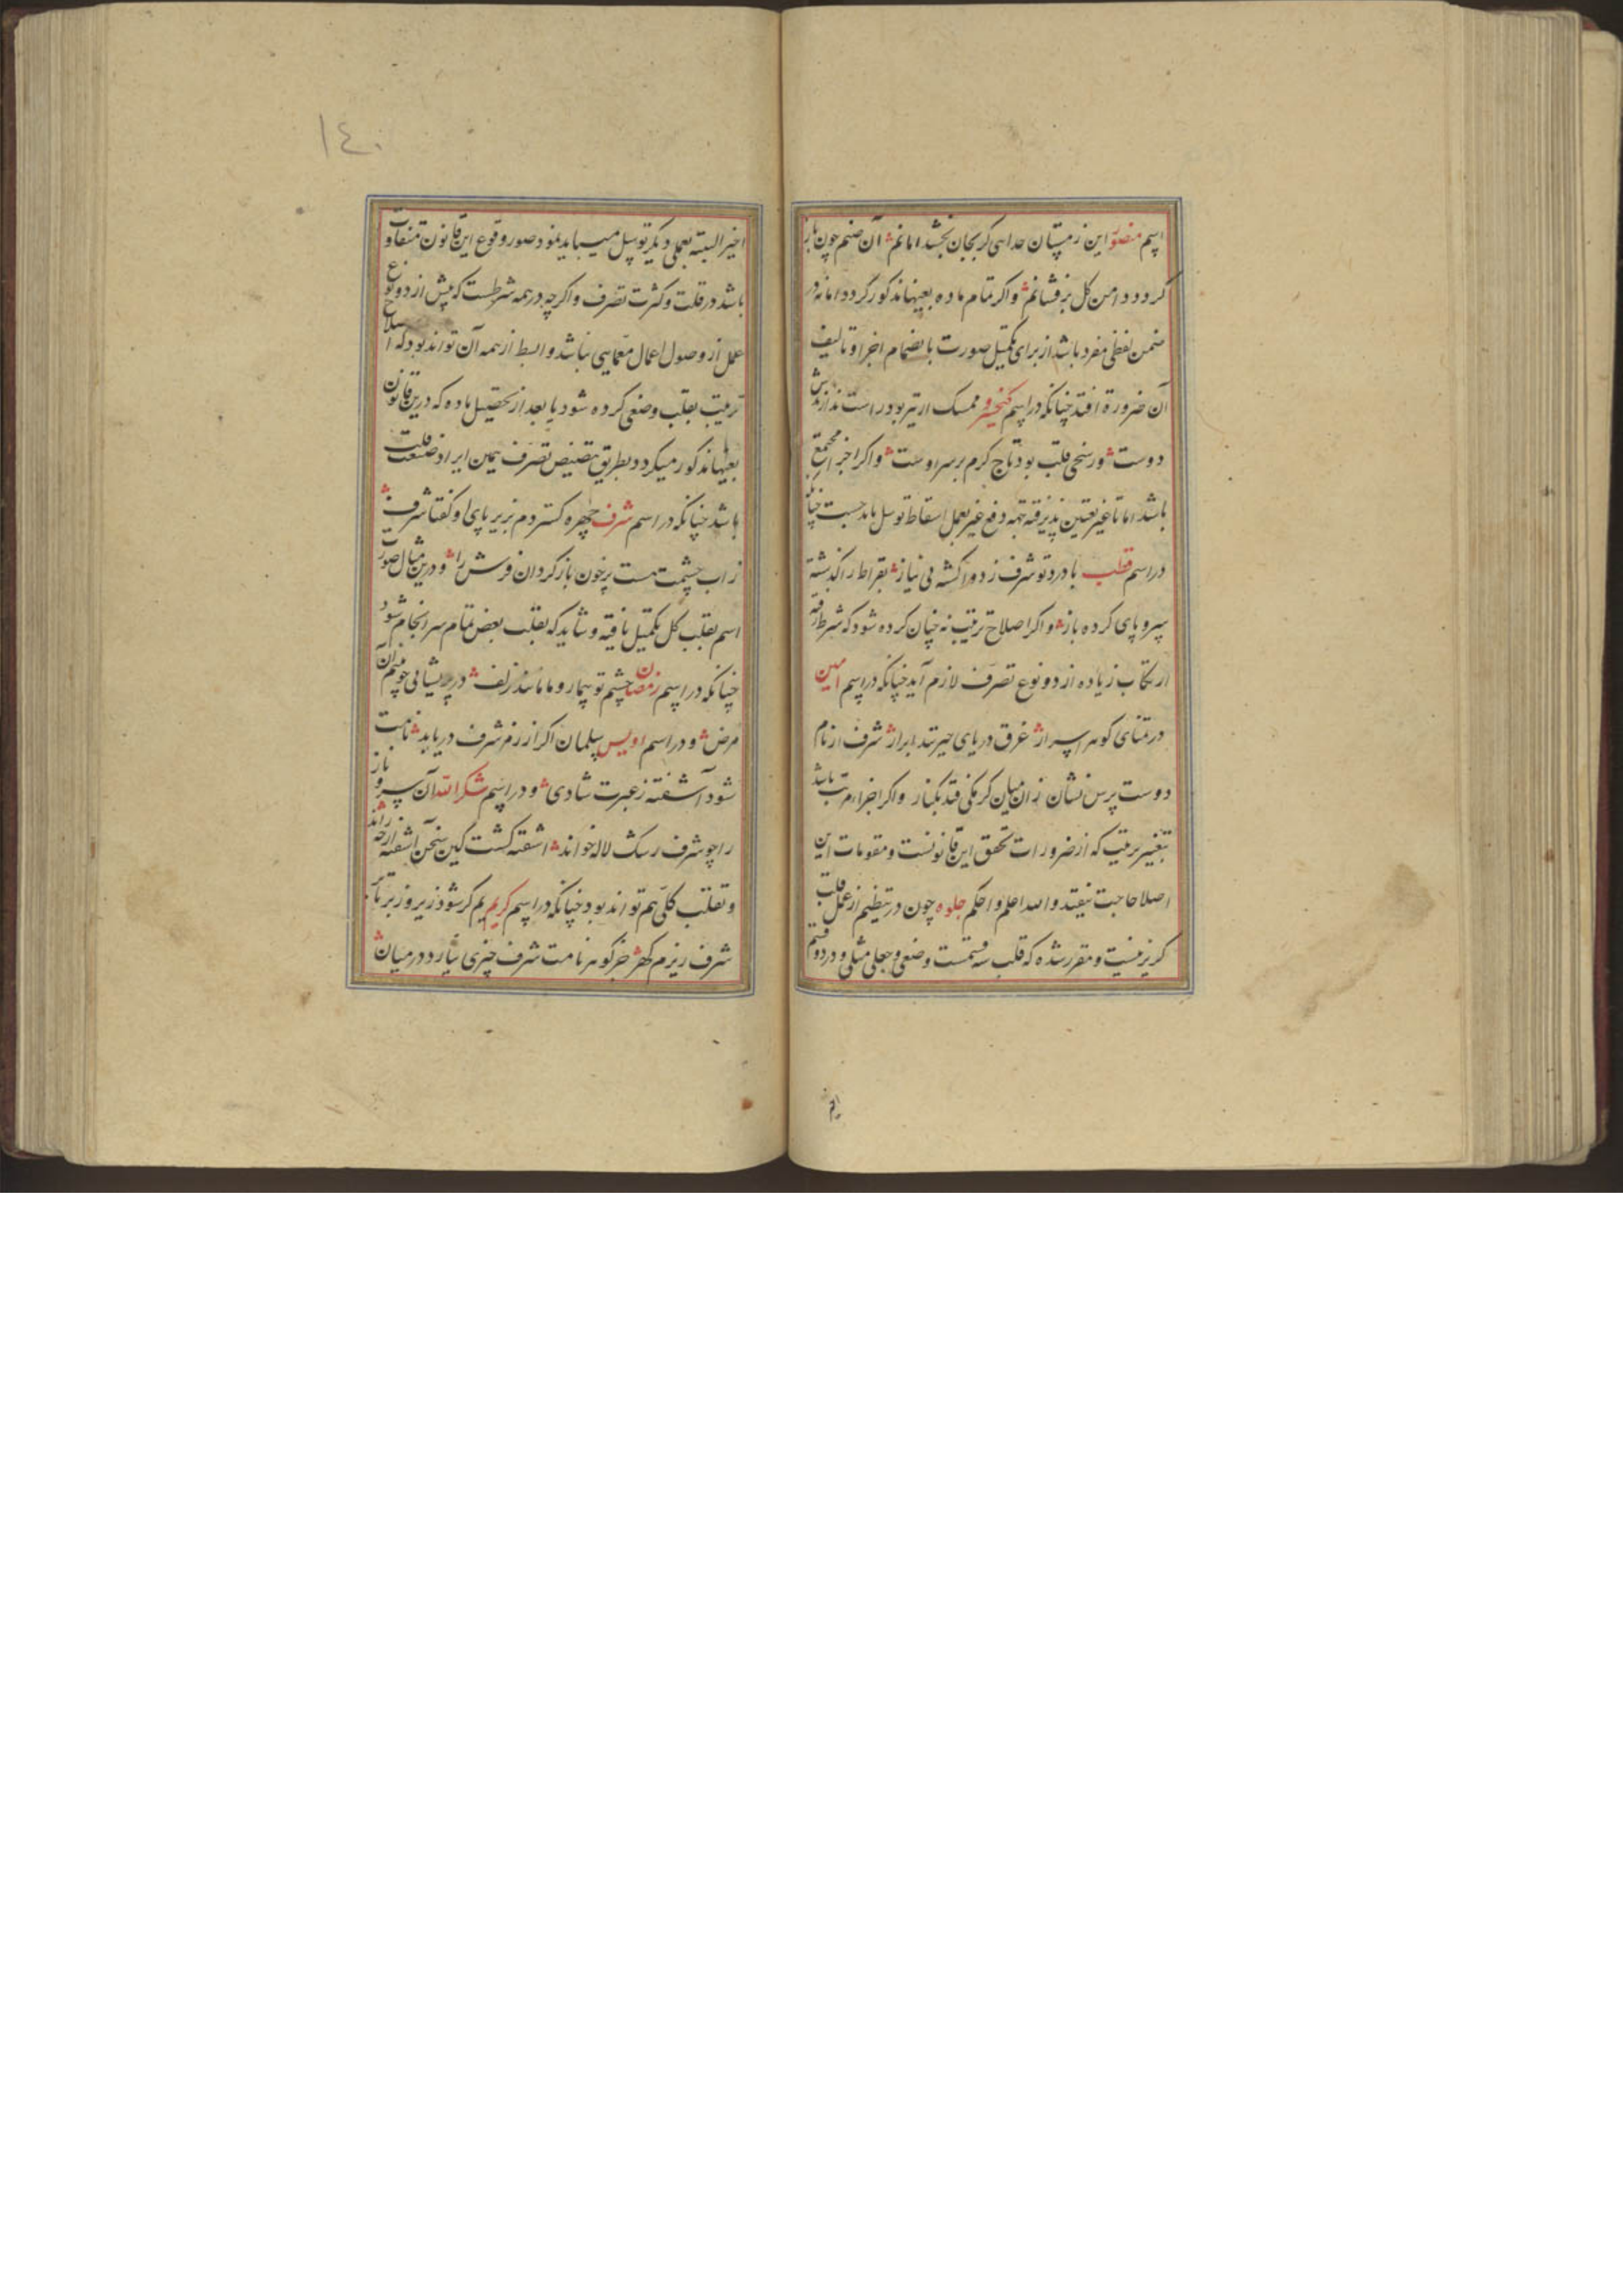 اسم منصور این زمستان جدایی گر بجان بخشد امانم آن صنم چون باز
گردد دامن گل برفشانم و اگر تمام ماده بعینها مذکور گردد اما نه در
ضمن لفظی مفرد باشد از برای تکمیل صورت بانضمام اجزا و تالیف
آن ضرورة افتد چنانکه در اسم کیخسرو ممسک ار تیر بود راست
دوست ور سخی قلب بود تاج کرم بر سر اوست و اگر اجزا مجتمع
باشد اما تا غیر تعیین پذیرفته تتمه دفع غیر بعمل اسقاط توسل باید جست چنانکه
در اسم قطب با درد تو شرف ز دوا گشته بی نیاز بقراط را گذشته
سر و پای کرده باز و اگر اصلاح ترتیب نه چنان کرده شود که شرط رفته
ارتکاب زیاده از دو نوع تصرف لازم آید چنانکه در اسم امین
در تمنای گوهر اسرار غرق دریای حیرتند ابرار شرف از نام
دوست پرس نشان زان میان گر یکی فتد بکنار و اگر اجزا مرتب باشد
بتغییر ترتیب که از ضرورات تحقق این قانونست و مقومات این
اصلا حاجت نیفتد والله اعلم و احکم جلوه چون در تنظیم از عمل قلب
گریز نیست و مقرر شده که قلب سه قسمست وضعی و جعلی مثلی و در دو قسم
اخیر البته بعملی دیگر توسل میباید نمود صور وقوع این قانون متفاوت
باشد در قلت و کثرت تصرف و اگرچه در همه شرطست که بیش از دو نوع
عمل از وصول اعمال معمایی نباشد و ابسط از همه آن تواند بود که اصلاح
ترتیب بقلب وضعی کرده شود یا بعد از تحصیل ماده که درین قانون
بعینها مذکور میگردد بطریق تنصیص تصرف همین ایراد صنعت قلب
باشد چنانکه در اسم شرف چهره گستردم بزیر پای او گفتا شرف
ز اب چشمت هست پرخون باز گردان فرش را و درین مثال صورت
اسم بقلب کل تکمیل یافته و شاید که بقلب بعض تمام سرانجام شود
چنانکه در اسم رمضان چشم تو بیمار و ما مانند زلف در پریشانی چو بیم آن
مرض و در اسم اویس سلمان اگر از رمز شرف دریابد نامت
شود آشفته ز عبرت شادی و در اسم شکرالله آن سرو ناز
را چو شرف رشک لاله خواند اشفته گشت کین سخن آشفته از چه راند
و تقلب کلی هم تواند بود چنانکه در اسم کریم یم گر شود زیر و زبر
شرف ریزم گهر جز گوهر نامت شرف چیزی نیارد در میان